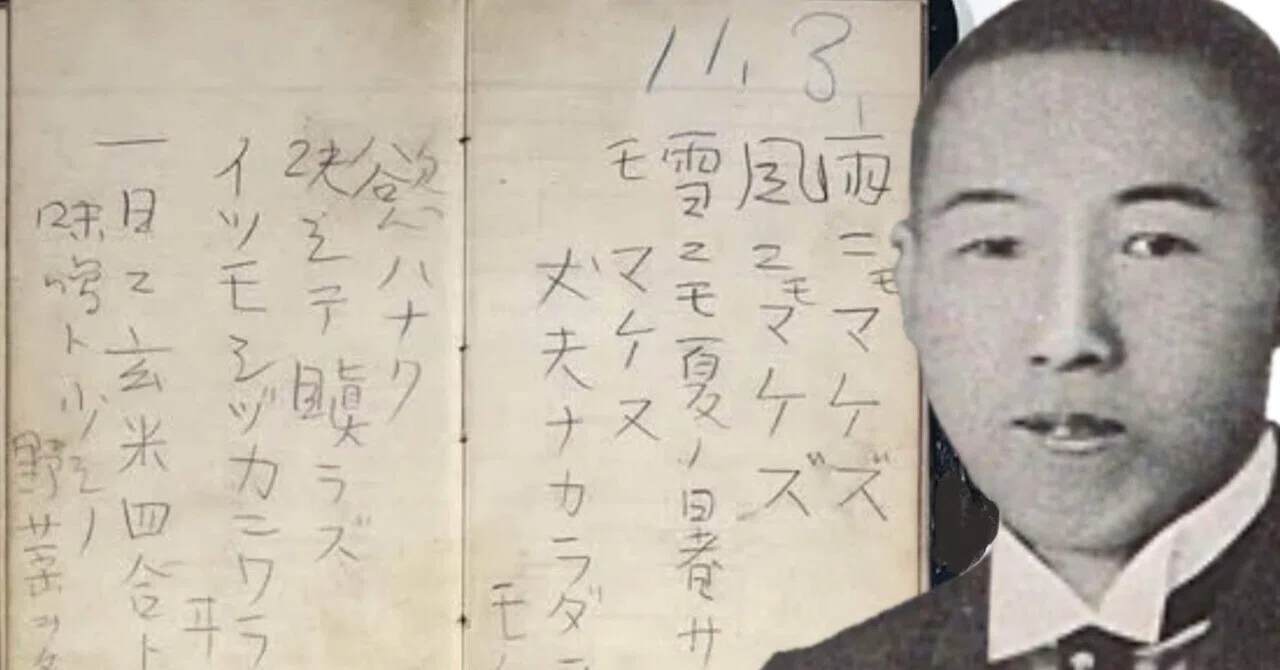 11.3
雨ニモマケズ
風ニモマケズ
雪ニモ夏ノ暑サ
モマケヌ
丈夫ナカラダ
モ
慾ハナク
決シテ瞋ラズ
イツモシヅカニワラ
ヰ
一日ニ玄米四合ト
味噌ト少シノ
野菜ヲタ